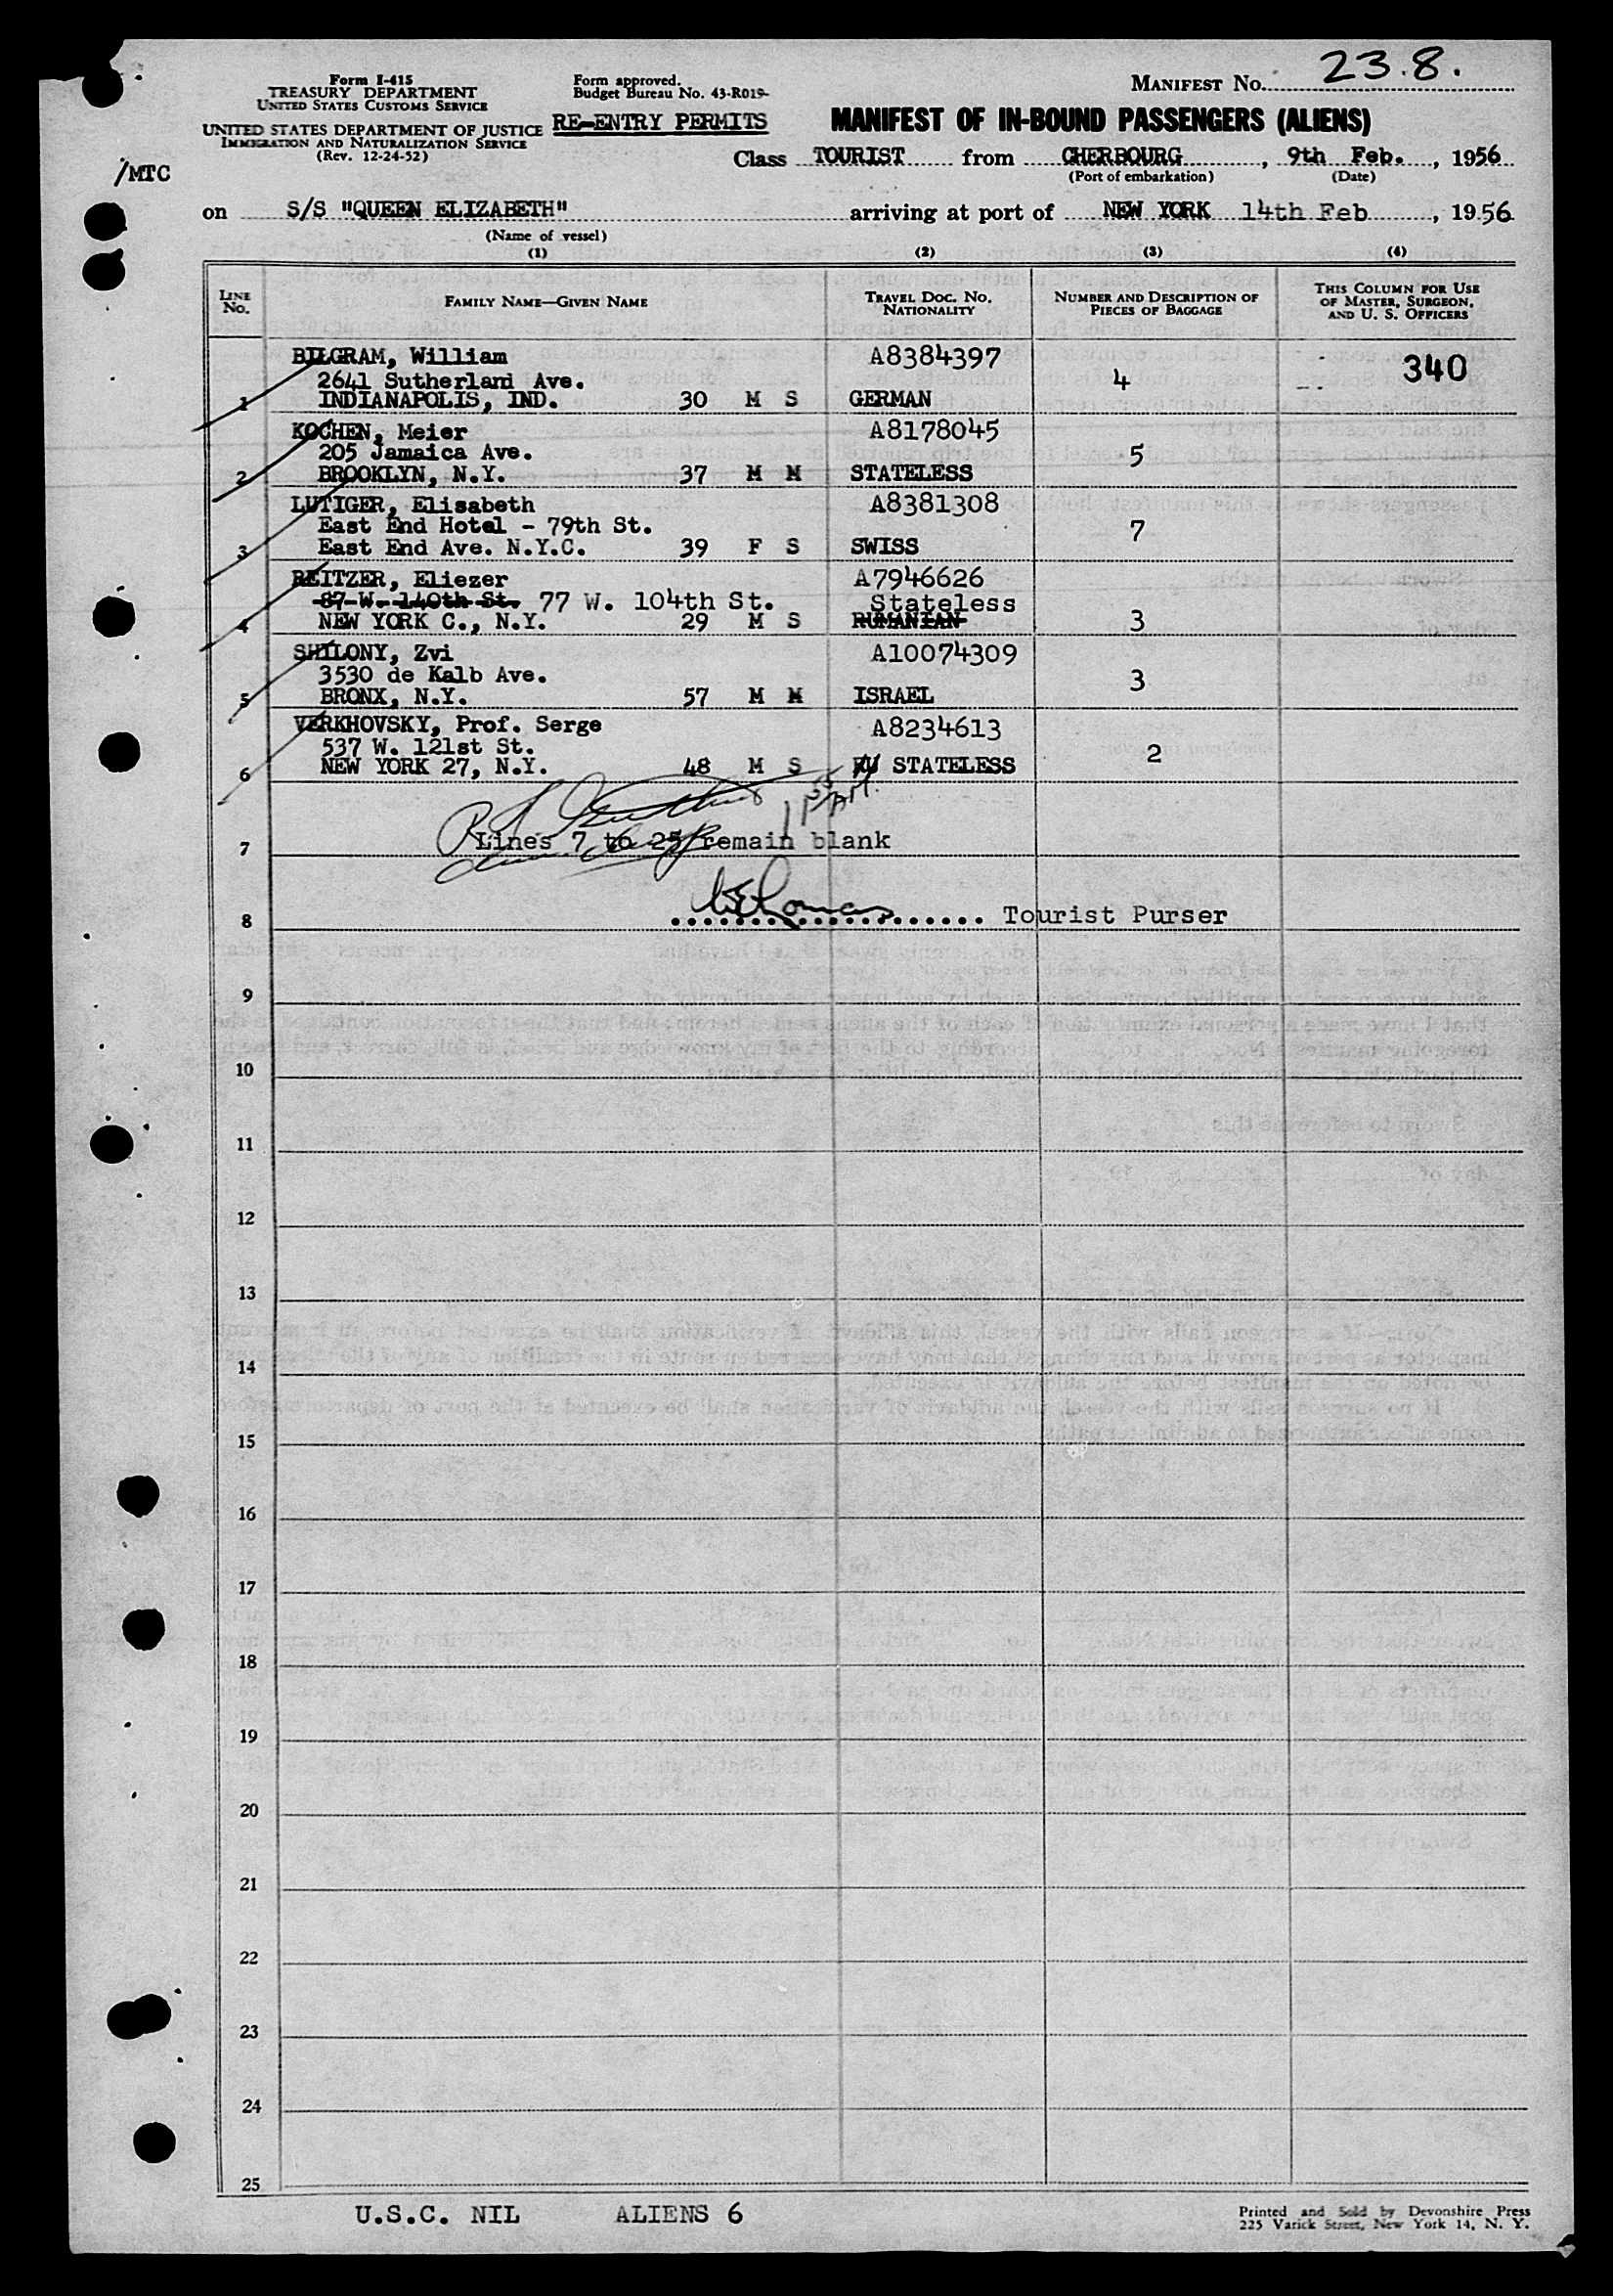 23.8.
Form I-415
TREASURY DEPARTMENT
UNITED STATES CUSTOMS SERVICE
UNITED STATES DEPARTMENT OF JUSTICE
IMMIGRATION AND NATURALIZATION SERVICE
(Rev. 12-24-52)
Form approved.
Budget Bureau No. 43-R019-
RE-ENTRY PERMITS
MANIFEST NO.
MANIFEST OF IN-BOUND PASSENGERS (ALIENS)
/MTC
Class TOURIST from CHERBOURG, 9th Feb., 1956
(Port of embarkation) (Date)
on S/S "QUEEN ELIZABETH" arriving at port of NEW YORK 14th Feb, 1956
(Name of vessel)
(1) (2) (3) (4)
LINE NO.
FAMILY NAME—GIVEN NAME
TRAVEL DOC. NO. NATIONALITY
NUMBER AND DESCRIPTION OF PIECES OF BAGGAGE
THIS COLUMN FOR USE OF MASTER, SURGEON, AND U. S. OFFICERS
BILGRAM, William A8384397 340
2641 Sutherland Ave. 4
1 INDIANAPOLIS, IND. 30 M S GERMAN
KOCHEN, Meier A8178045
205 Jamaica Ave. 5
2 BROOKLYN, N.Y. 37 M M STATELESS
LUTIGER, Elisabeth A8381308
East End Hotel - 79th St. 7
3 East End Ave. N.Y.C. 39 F S SWISS
REITZER, Eliezer A7946626
87 W. 140th St. 77 W. 104th St. Stateless
4 NEW YORK C., N.Y. 29 M S RUMANIAN 3
SHILONY, Zvi A10074309
3530 de Kalb Ave. 3
5 BRONX, N.Y. 57 M M ISRAEL
VERKHOVSKY, Prof. Serge A8234613
537 W. 121st St. 2
6 NEW YORK 27, N.Y. 48 M S STATELESS
7 Lines 7 to 25 remain blank
8 Tourist Purser
9
10
11
12
13
14
15
16
17
18
19
20
21
22
23
24
25
U.S.C. NIL ALIENS 6
Printed and Sold by Devonshire Press
225 Varick Street, New York 14, N. Y.